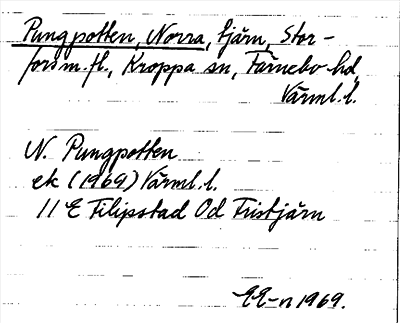 Pungpotten, Norra, tjärn, Stor-
fors m.fl., Kroppa sn, Färnebo hd,
Värml. l.
N. Pungpotten
ek (1969) Värml. l.
11 E Filipstad Od Tristjärn
EE-n 1969.